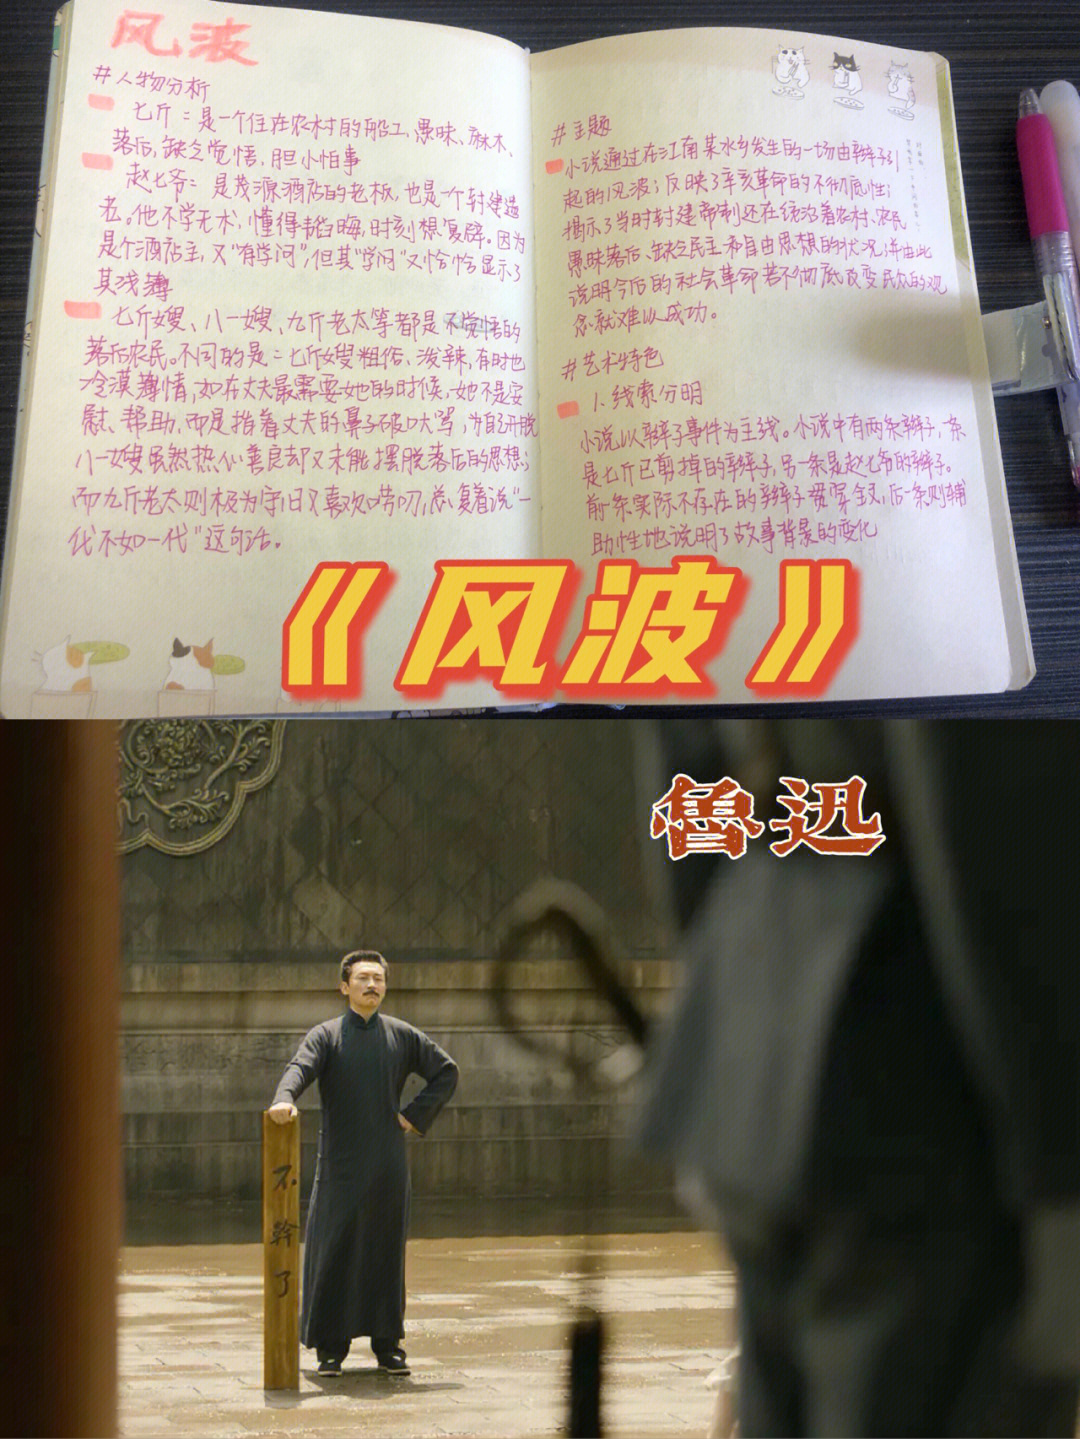 风波
#人物分析
七斤：是一个住在农村的船工,愚昧、麻木、
落后,缺乏觉悟,胆小怕事
赵七爷：是茂源酒店的老板,也是一个封建遗
老。他不学无术,懂得韬晦,时刻想复辟。因为
是个酒店主,又“有学问”,但其“学问”又恰恰显示了
其浅薄
七斤嫂、八一嫂、九斤老太等都是不觉悟的
落后农民。不同的是：七斤嫂粗俗、泼辣,有时也
冷漠薄情,如在丈夫最需要她的时候,她不是安
慰、帮助,而是指着丈夫的鼻子破口大骂,为自己开脱
八一嫂虽然热心善良却又未能摆脱落后的思想；
而九斤老太则极为守旧又喜欢唠叨,总复着说“一
代不如一代”这句话。
#主题
小说通过在江南某水乡发生的一场由辫子引
起的风波；反映了辛亥革命的不彻底性；
揭示了当时封建帝制还在统治着农村、农民
愚昧落后、缺乏民主和自由思想的状况；并由此
说明今后的社会革命若不彻底改变民众的观
念就难以成功。
#艺术特色
1.线索分明
小说以辫子事件为主线。小说中有两条辫子,一条
是七斤已剪掉的辫子,另一条是赵七爷的辫子。
前一条实际不存在的辫子贯穿全文,后一条则辅
助性地说明了故事背景的变化
《风波》
魯迅
不幹了